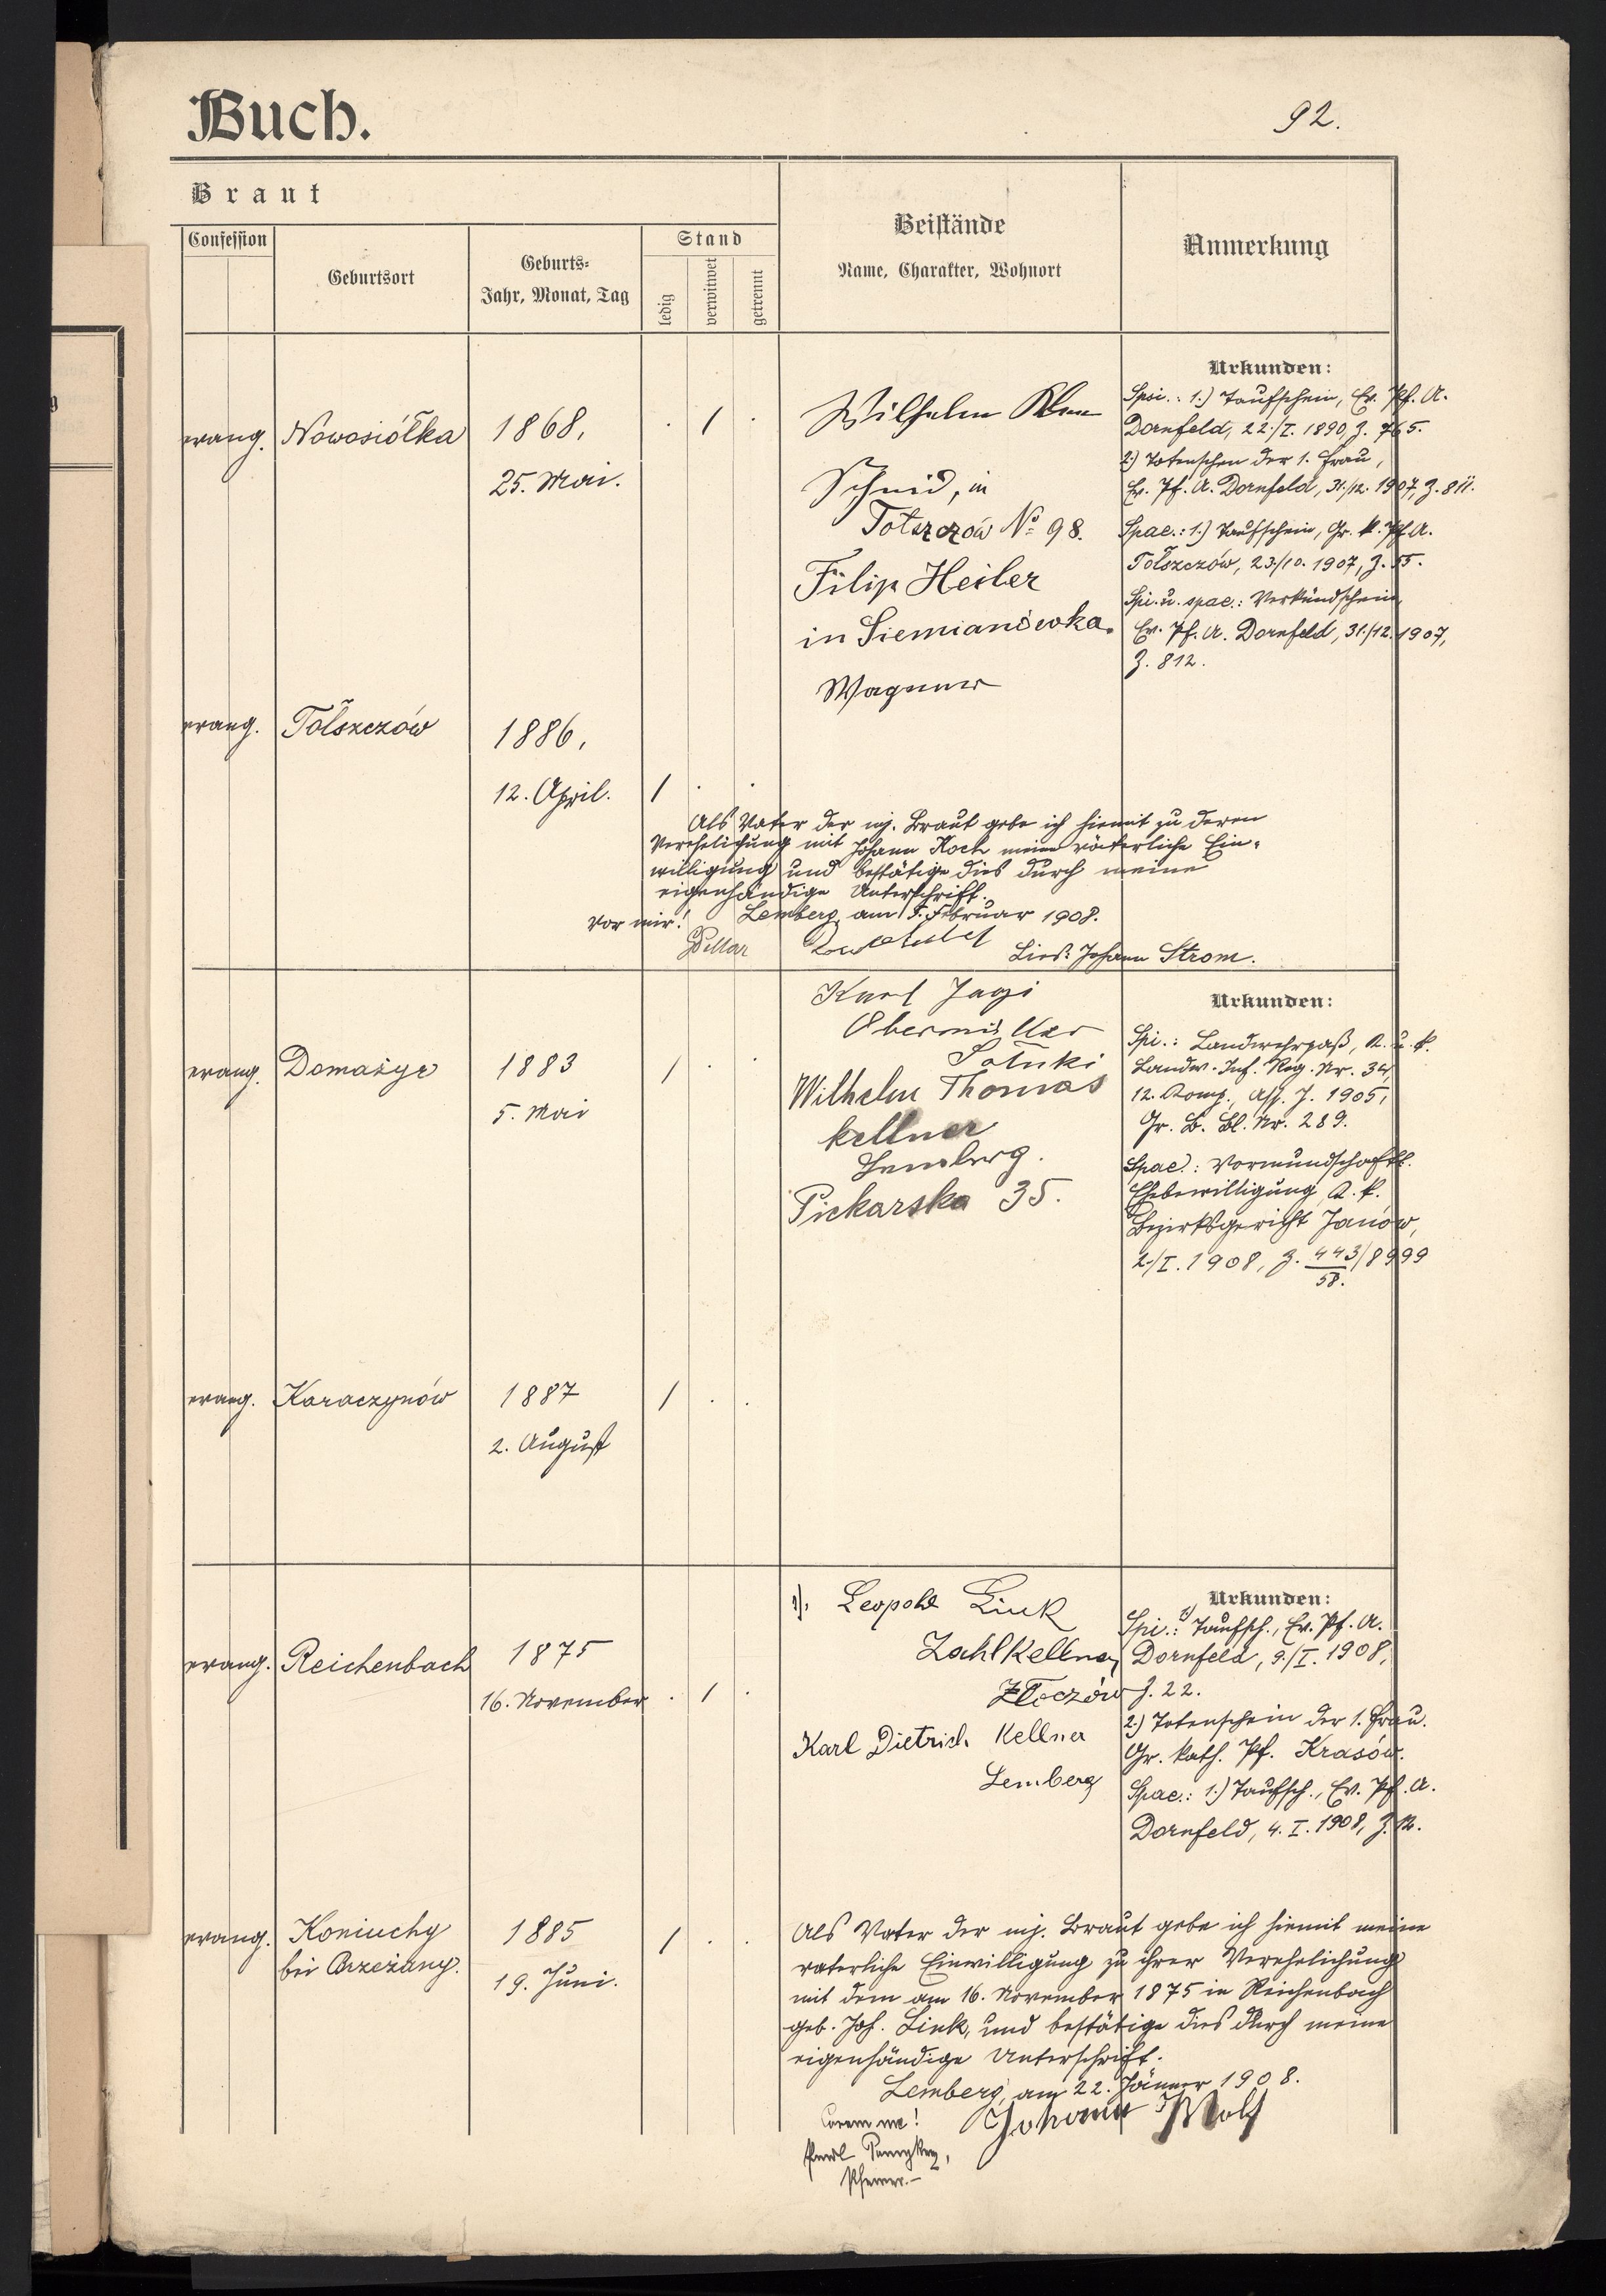 Buch.
92.
Braut
Beistände
Name, Charakter, Wohnort
Anmerkung
Confession
Geburtsort
Geburts-
Jahr, Monat, Tag
Stand
ledig
verwitwet
getrennt
Urkunden:
evang.
Nowosiółka
1868,
25. Mai.
. 1 .
Wilhelm
Schmid, in
Tołszczów No 98.
Filip Heiler
in Siemianówka.
Wagner
Spi.: 1.) Taufschein, Ev. Pf. A.
Dornfeld, 22./I. 1890, Z. 765.
2.) Totenschein der 1. Frau,
Ev. Pf. A. Dornfeld, 31./12. 1907, Z. 811.
Spae.: 1.) Taufschein, Gr. k. Pf. A.
Tołszczów, 23./10. 1907, Z. 55.
Spi. u. spae.: Verkündschein,
Ev. Pf. A. Dornfeld, 31./12. 1907,
Z. 812.
evang.
Tołszczów
1886,
12. April.
1 . .
Als Vater der mj. Braut gebe ich hiemit zu deren
Verehelichung mit Johann Koch meine väterliche Ein-
willigung und bestätige dies durch meine
eigenhändige Unterschrift.
Vor mir! Lemberg, am 5. Februar 1908.
Johann Strom.
evang.
Domażyr
1883
5. Mai
1 . .
Karl Jagi
Obermüller
Wilhelm Thomas
Kellner
Lemberg.
Piekarska 35.
Urkunden:
Spi.: Landwehrpaß, k. u. k.
Landw. Inf. Reg. Nr. 34,
12. Komp., Ass. J. 1905,
Gr. B. Bl. Nr. 289.
Spae.: Vormundschaftl.
Ehebewilligung k. k.
Bezirksgericht Janów,
2./I. 1908, Z. 443/8999
58.
evang.
Karaczynów
1887
2. August
1 . .
evang.
Reichenbach
1875
16. November
. 1 .
1). Leopold Link
Zahlkellner
Złoczów
Karl Dietrich Kellner
Lemberg
Urkunden:
Spi.: 1) Taufsch., Ev. Pf. A.
Dornfeld, 9./I. 1908,
Z. 22.
2.) Totenschein der 1. Frau.
Gr. kath. Pf. Krasów.
Spae.: 1.) Taufsch., Ev. Pf. A.
Dornfeld, 4. I. 1908, Z. 12.
evang.
Koniuchy
bei Brzeżany.
1885
19. Juni.
1 . .
Als Vater der mj. Braut gebe ich hiemit meine
vaterliche Einwilligung zu ihrer Verehelichung
mit dem am 16. November 1875 in Reichenbach
geb. Joh. Link, und bestätige dies durch meine
eigenhändige Unterschrift.
Lemberg, am 22. Jänner 1908.
Coram me!
Johann Wolf
Pfarrer.